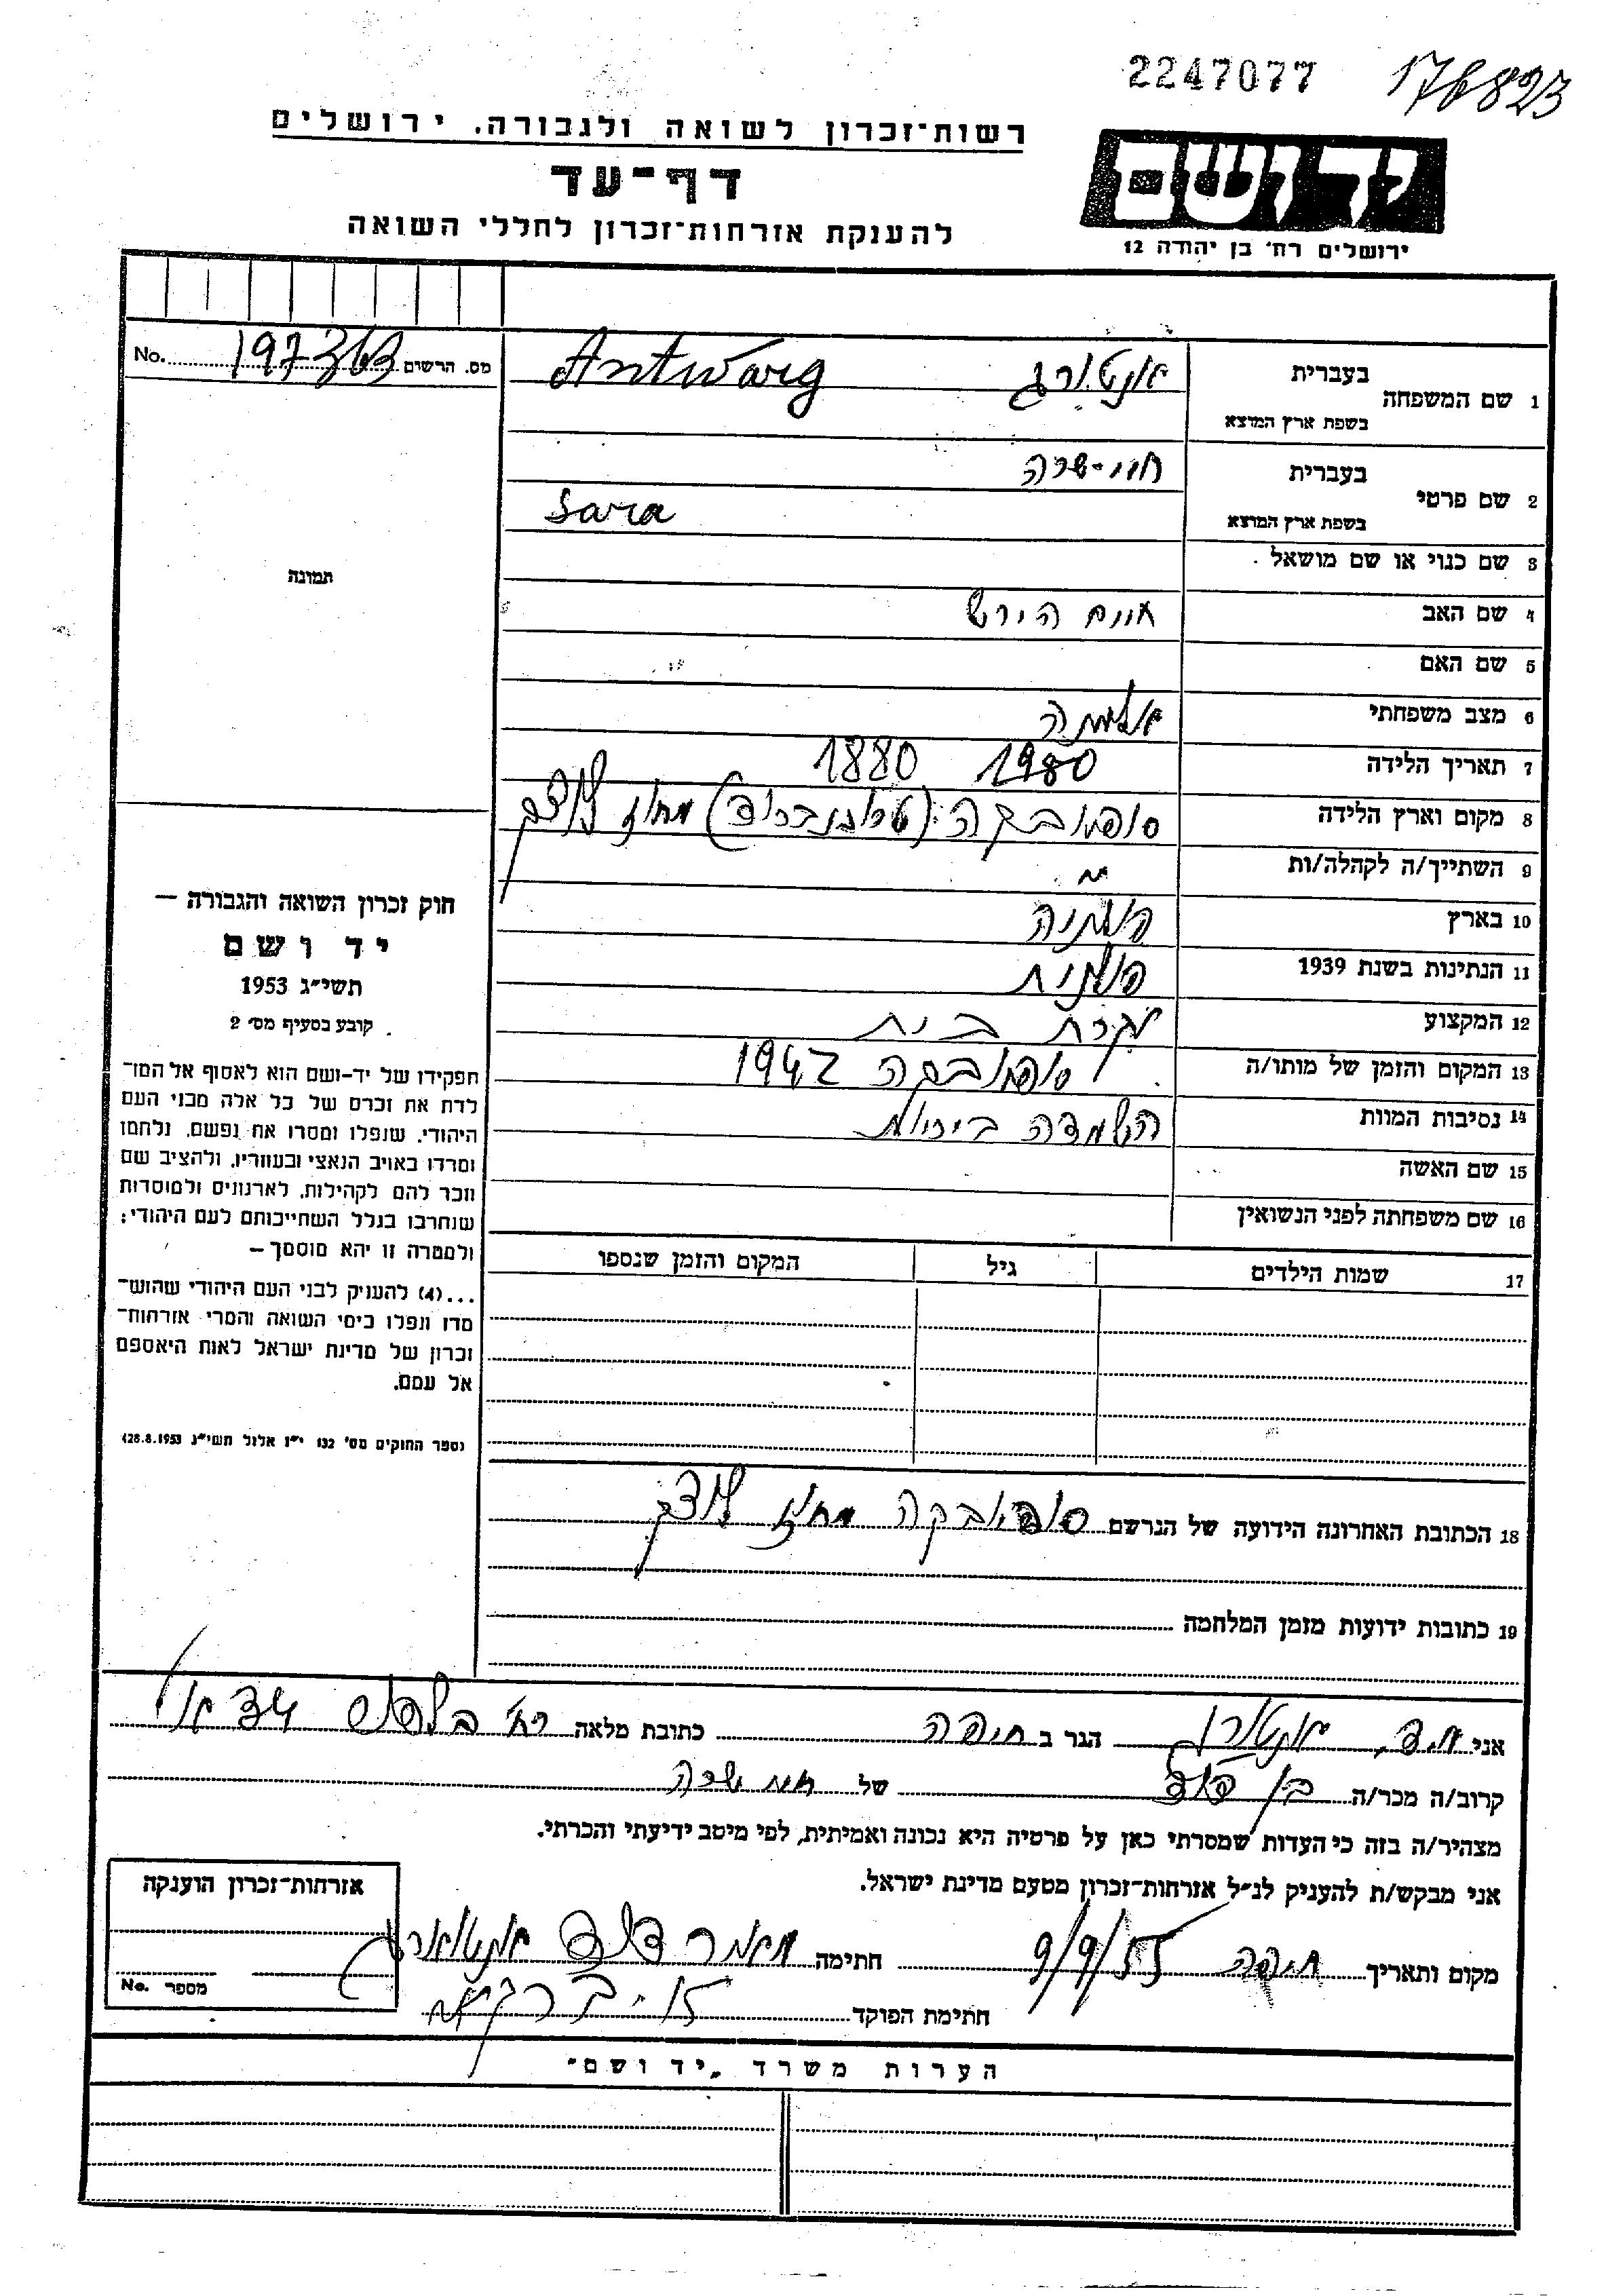 2247077
176823
רשות־זכרון לשואה ולגבורה. ירושלים
דף־עד
להענקת אזרחות־זכרון לחללי השואה
יד ושם
ירושלים רח׳ בן יהודה 12
מס. הרשים 197363 No.
1 שם המשפחה בעברית אנטורג Antwarg
בשפת ארץ המוצא
2 שם פרטי בעברית חיי-שרה
בשפת ארץ המוצא Sara
3 שם כנוי או שם מושאל
תמונה
4 שם האב חיים הירש
5 שם האם
6 מצב משפחתי אלמנה
7 תאריך הלידה 1980 1880
8 מקום וארץ הלידה סופיובקה (טרוכנברוד) מחוז לוצק
9 השתייך/ה לקהלה/ות
10 בארץ
11 הנתינות בשנת 1939 פולנית
12 המקצוע עקרת בית
13 המקום והזמן של מותו/ה סופיובקה 1942
14 נסיבות המוות השמדה ביריות
15 שם האשה
16 שם משפחתה לפני הנשואין
17 שמות הילדים גיל המקום והזמן שנספו
חוק זכרון השואה והגבורה —
יד ושם
תשי״ג 1953
קובע בסעיף מס׳ 2
תפקידו של יד-ושם הוא לאסוף אל המו־
לדת את זכרם של כל אלה מבני העם
היהודי, שנפלו ומסרו את נפשם, נלחמו
ומרדו באויב הנאצי ובעוזריו, ולהציב שם
וזכר להם לקהילות, לארגונים ולמוסדות
שנחרבו בגלל השתייכותם לעם היהודי;
ולמטרה זו יהא מוסמך—
...(4) להעניק לבני העם היהודי שהוש־
מדו ונפלו בימי השואה והמרי אזרחות־
זכרון של מדינת ישראל לאות היאספם
אל עמם.
(ספר החוקים מס׳ 132 י״ז אלול תשי״ג 28.8.1953)
18 הכתובת האחרונה הידועה של הנרשם סופיובקה מחוז לוצק
19 כתובות ידועות מזמן המלחמה
אני מ.ד. אנטורג הגר ב חיפה כתובת מלאה רח׳
קרוב/ה מכר/ה בן דוד של חיי שרה
מצהיר/ה בזה כי העדות שמסרתי כאן על פרטיה היא נכונה ואמיתית, לפי מיטב ידיעתי והכרתי.
אני מבקש/ת להעניק לנ״ל אזרחות־זכרון מטעם מדינת ישראל.
מקום ותאריך חיפה 9/9/55 חתימה מאיר דוד אנטוורג
חתימת הפוקד
אזרחות־זכרון הוענקה
מספר No.
הערות משרד „יד ושם״